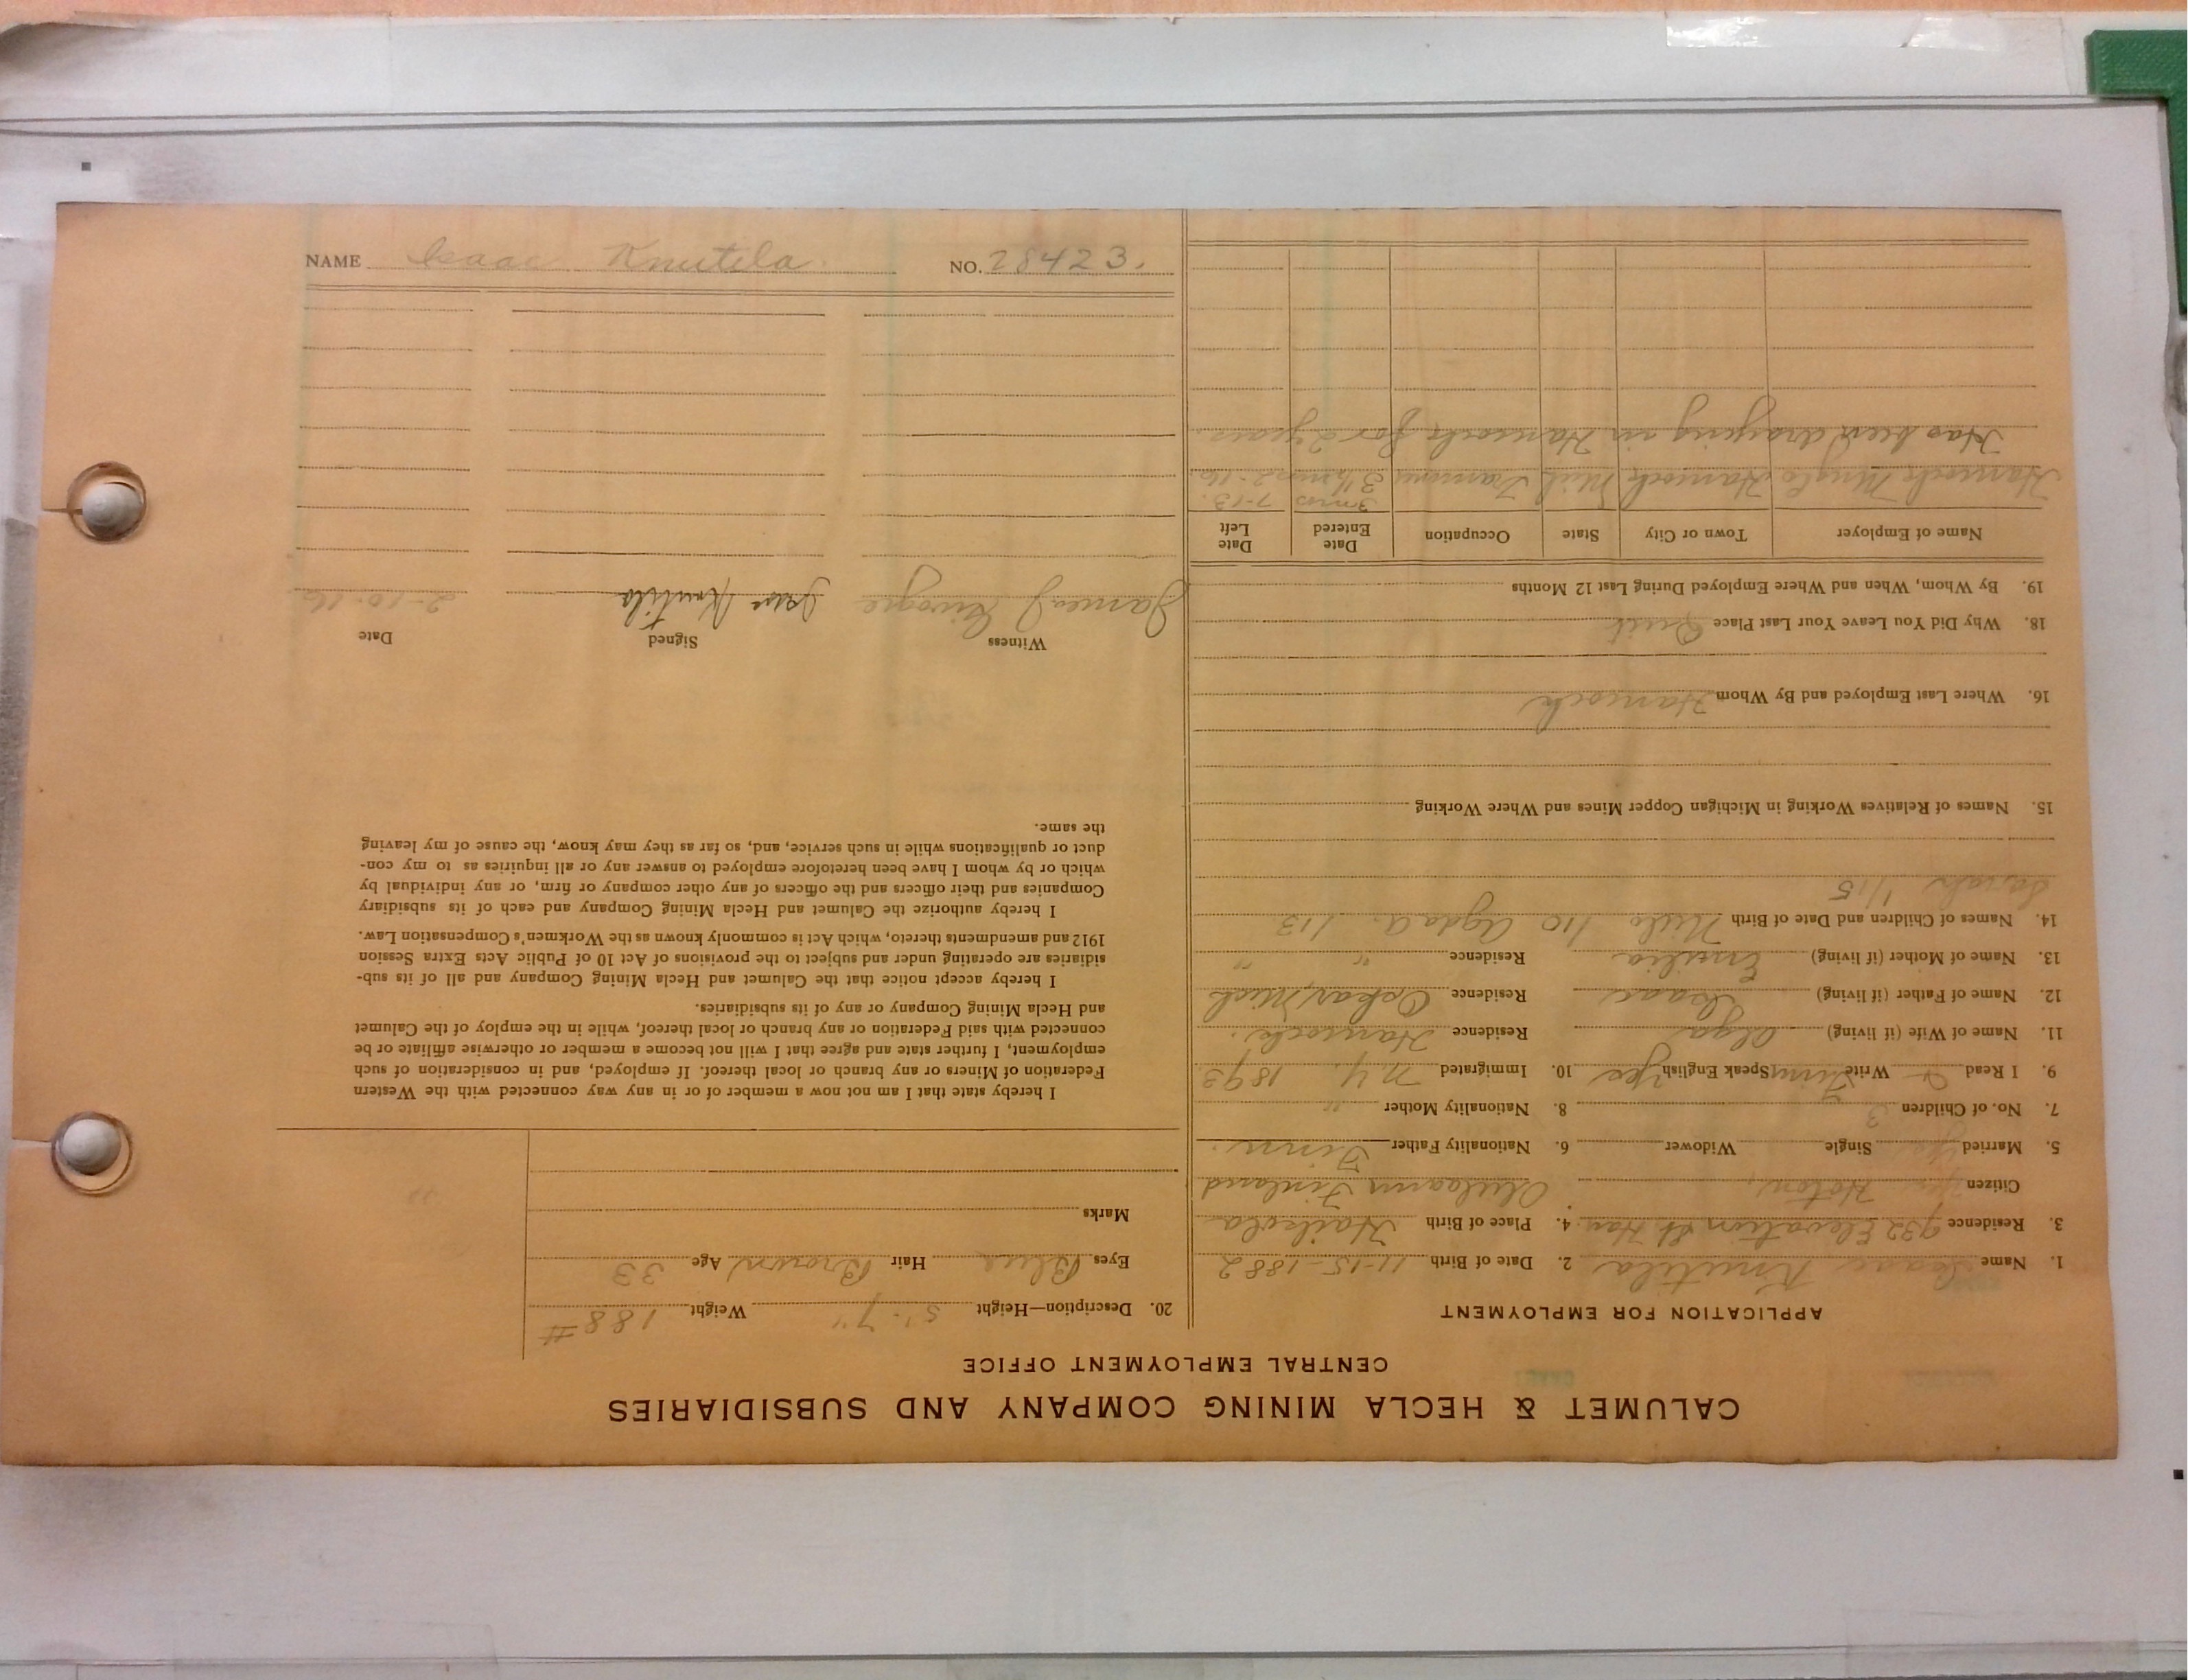 CALUMET & HECLA MINING COMPANY AND SUBSIDIARIES
CENTRAL EMPLOYMENT OFFICE
APPLICATION FOR EMPLOYMENT
1. Name Isaac Knutila 2. Date of Birth 11-15-1882
3. Residence 932 Elevation St. Han. 4. Place of Birth
Citizen yes Finland
5. Married yes Single Widower 6. Nationality Father Finn.
7. No. of Children 3 8. Nationality Mother "
9. I Read & Write Finn Speak English Yes 10. Immigrated N.Y. 1893
11. Name of Wife (if living) Olga Residence Hancock.
12. Name of Father (if living) Isaac Residence Oskar, Mich
13. Name of Mother (if living) Emilia Residence " "
14. Names of Children and Date of Birth 1/10 1/13
1/15
15. Names of Relatives Working in Michigan Copper Mines and Where Working
16. Where Last Employed and By Whom Hancock
18. Why Did You Leave Your Last Place Quit
19. By Whom, When and Where Employed During Last 12 Months
Name of Employer Town or City State Occupation Date Entered Date Left
3 mos 7-13.
Hancock Hancock Mich 3 1/2 mos 2-16.
Has been draying in Hancock for 2 years.
20. Description—Height 5'-7" Weight 188#
Eyes Blue Hair Brown Age 33
Marks
I hereby state that I am not now a member of or in any way connected with the Western
Federation of Miners or any branch or local thereof. If employed, and in consideration of such
employment, I further state and agree that I will not become a member or otherwise affiliate or be
connected with said Federation or any branch or local thereof, while in the employ of the Calumet
and Hecla Mining Company or any of its subsidiaries.
I hereby accept notice that the Calumet and Hecla Mining Company and all of its sub-
sidiaries are operating under and subject to the provisions of Act 10 of Public Acts Extra Session
1912 and amendments thereto, which Act is commonly known as the Workmen's Compensation Law.
I hereby authorize the Calumet and Hecla Mining Company and each of its subsidiary
Companies and their officers and the officers of any other company or firm, or any individual by
which or by whom I have been heretofore employed to answer any or all inquiries as to my con-
duct or qualifications while in such service, and, so far as they may know, the cause of my leaving
the same.
Witness Signed Date
James Knutila 2-10-16
NAME Isaac Knutila. NO. 28423.